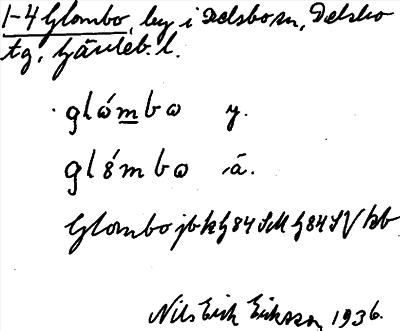 1-4 Glombo, by i Delsbo sn, Delsbo
tg, Gävleb. l.
glómbo y.
glómbo ä.
Glombo jbkG84SM G84SV kb
Nils Erik Eriksson 1936.